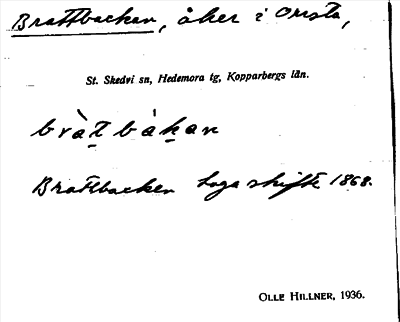 Brattbacken, åker i Onsta,
St. Skedvi sn, Hedemora tg, Kopparbergs län.
bràt bákan
Brattbacken Laga skifte 1868.
OLLE HILLNER, 1936.